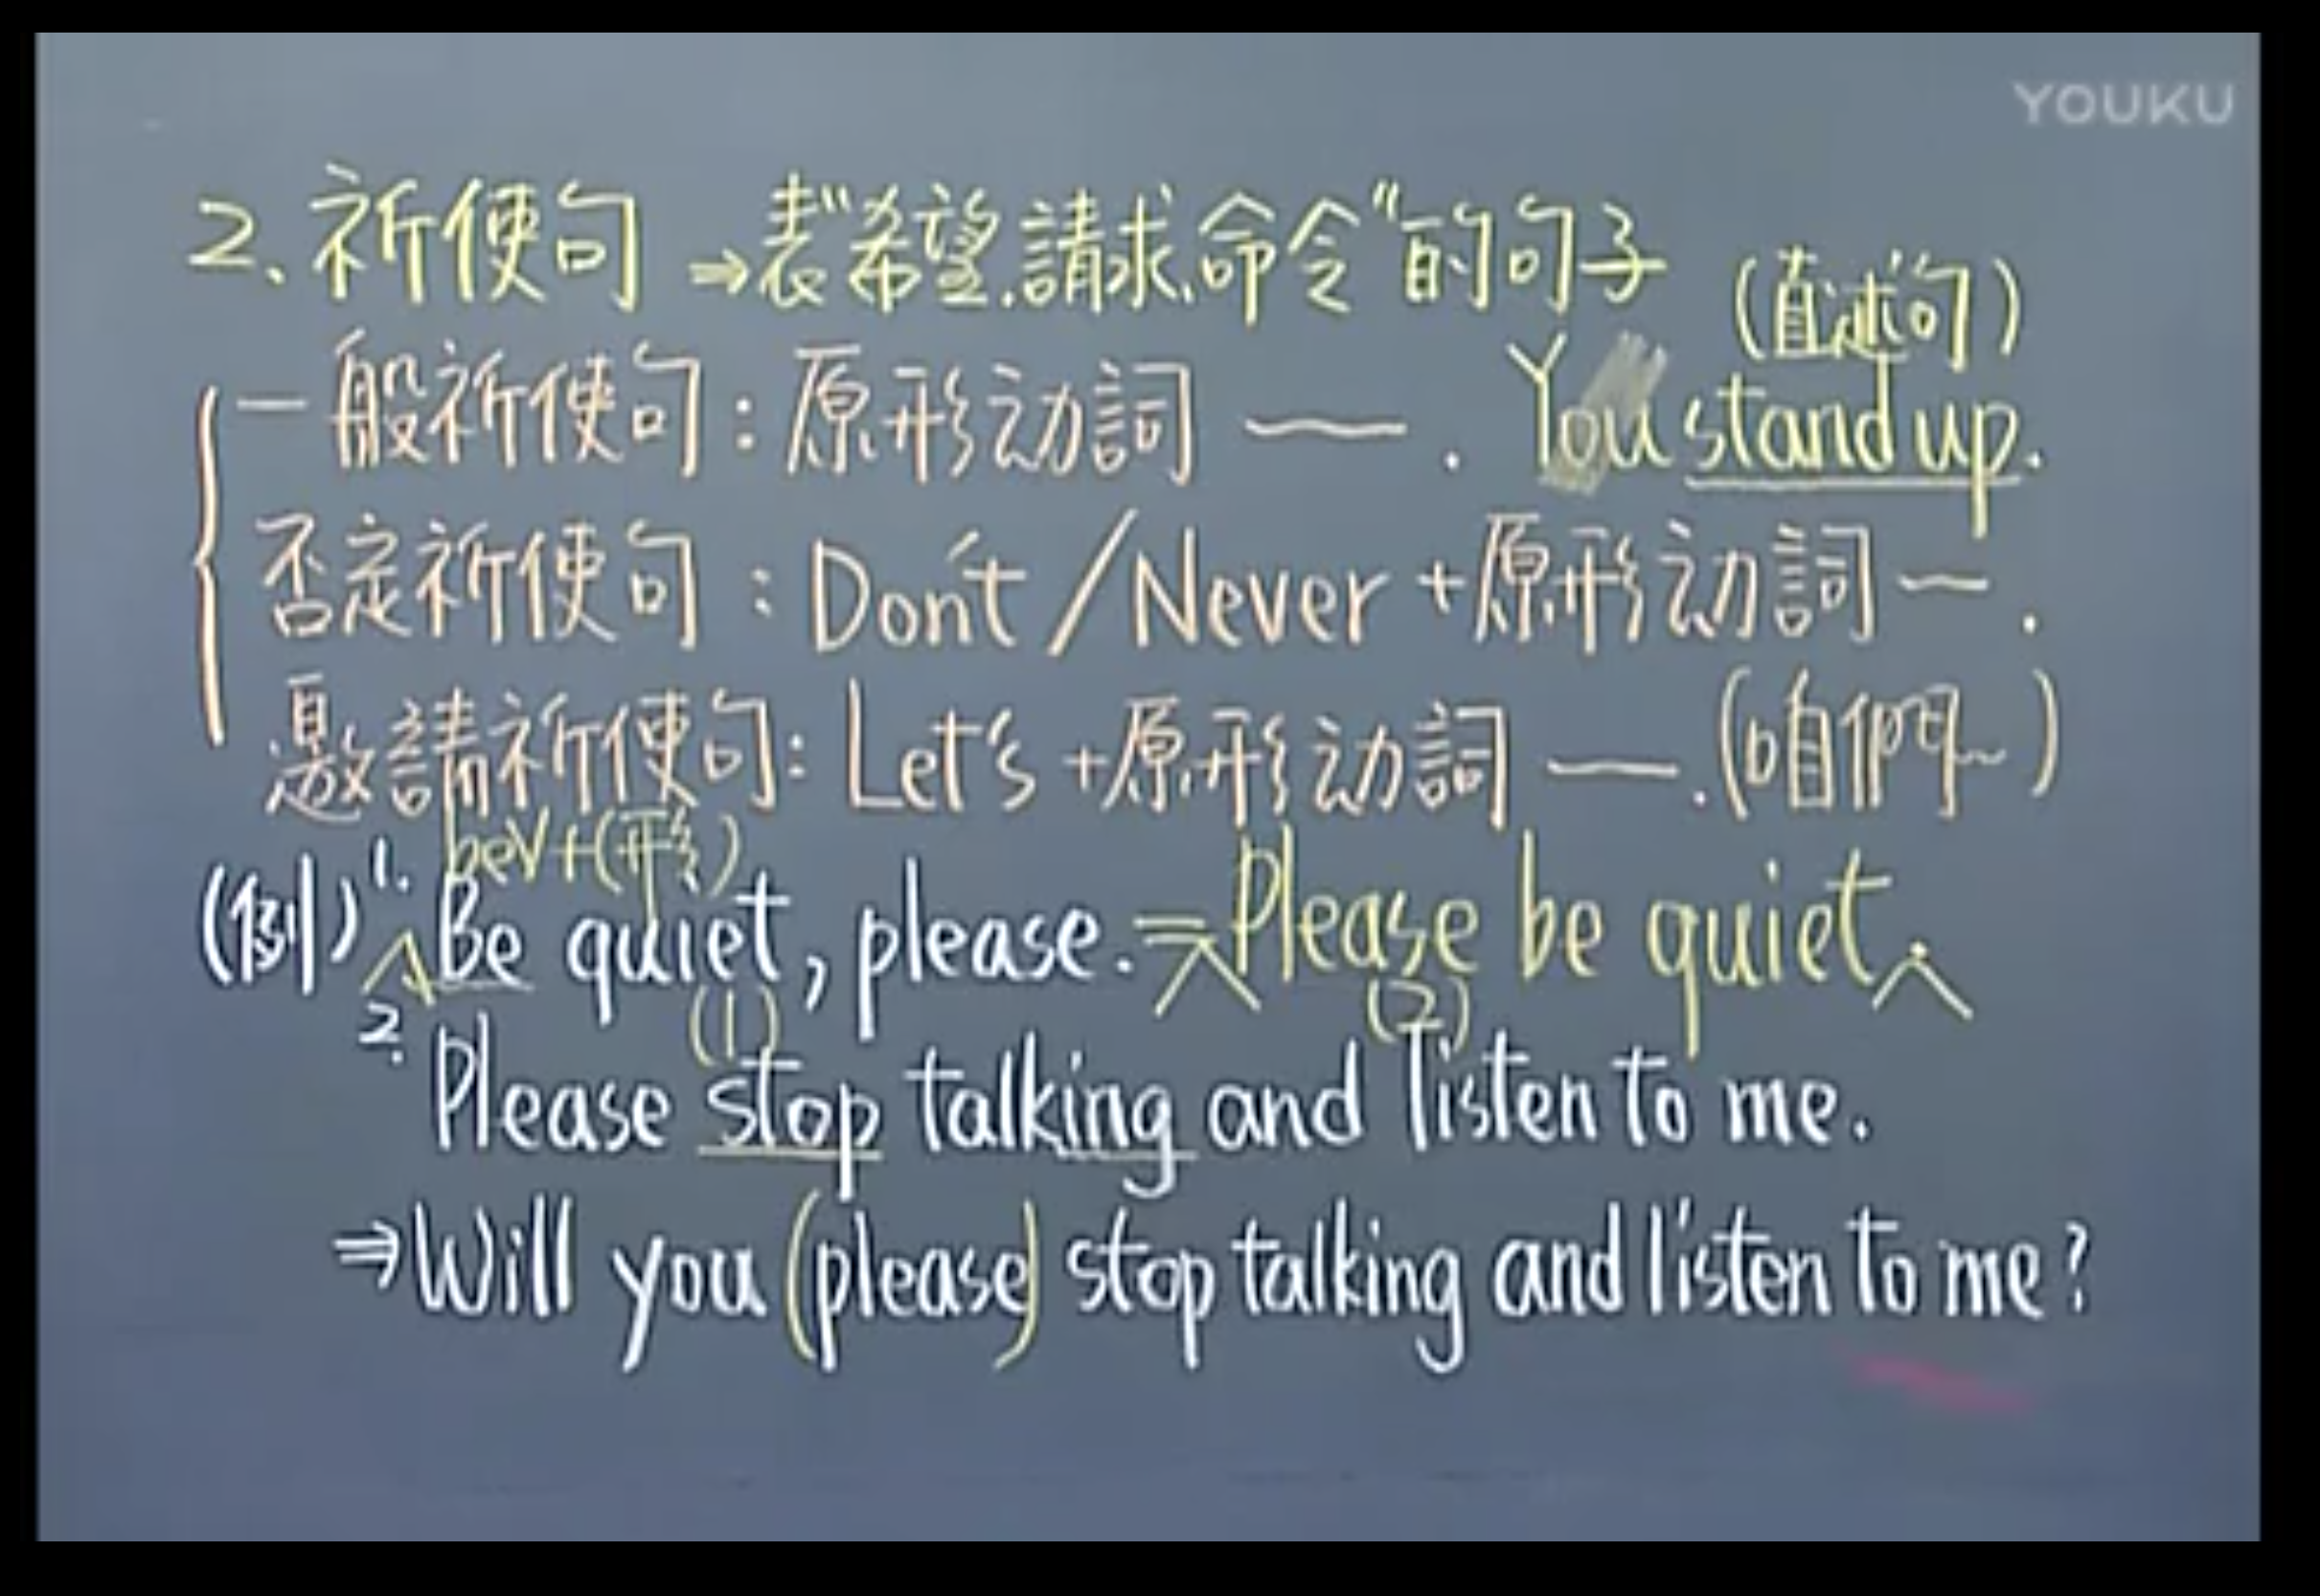 YOUKU
2、祈使句 ⇒表"希望、請求、命令"的句子
(直述句)
一般祈使句：原形动詞 —. You stand up.
否定祈使句：Don't / Never +原形动詞 —.
邀請祈使句: Let's +原形动詞 —. (咱們~)
beV+(形)
(例) 1. Be quiet, please. = Please be quiet.
(1) (2)
2. Please stop talking and listen to me.
⇒Will you (please) stop talking and listen to me?